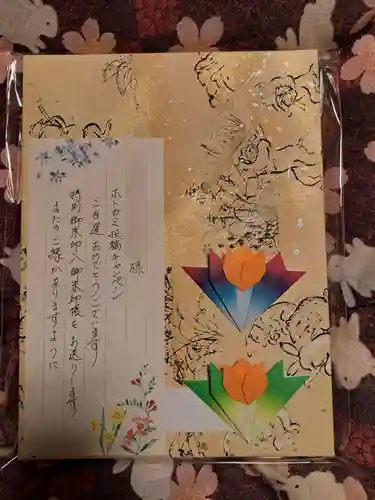 様
ホトカミ投稿キャンペーン
ご当選おめでとうございます
特別御朱印入御朱印帳をお送りします
またのご縁がありますように